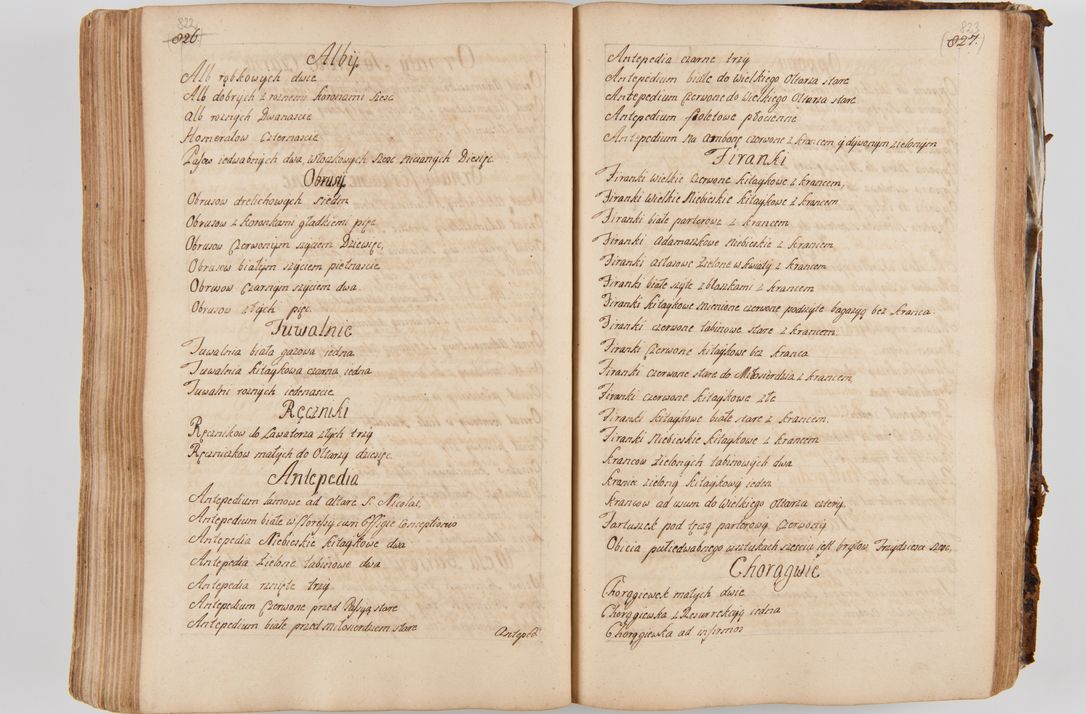 822
826.
Alby
Alb robkowych dwie
Alb dobrych z roznemi koronami szesc
Alb roznych Dwanascie
Homerałow Czternascie
Pasow iedwabnych dwa, włoczkowych szesc nicianych Dziesięc
Obrusy
Obrusow drelichowych siedm
Obrusow z koronkami gładkiemi pięc
Obrusow Czerwonym szyciem Dziewięc,
Obrusow białym szyciem pietnascie
Obrusow Czarnym szyciem dwa
Obrusow złych pięc
Tuwalnie
Tuwalnia biała gazowa iedna
Tuwalnia kitaykowa czarna iedna
Tuwalni roznych iedenascie
Ręczniki
Ręcznikow do Lawaterza złych trzy
Ręczniczkow małych do Ołtarzy dziesięc
Antepedia
Antepedium lamowe ad altare S. Nicolai,
Antepedium białe w floresy cum Effigie Conceptionis
Antepedia Niebieskie kitaykowe dwa
Antepedia Zielone tabinowe dwa
Antepedia rznięte trzy
Antepedium Czerwone przed Passyą stare
Antepedium białe przed miłosierdziem stare
Antepe
823
(827.)
Antepedia czarne trzy
Antepedium białe do Wielkiego Ołtarza stare
Antepedium Czerwone do Wielkiego Ołtarza stare
Antepedium fioletowe płocienne
Antepedium Na Ambonę czerwone z krancem y dywanym zielonym
Firanki
Firanki Wielkie Czerwone kitaykowe z krancem,
Firanki Wielkie Niebieskie kitaykowe z krancem
Firanki białe parterowe z krancem
Firanki adamaszkowe niebieskie z krancem
Firanki atłasowe Zielone w kwiaty z krancem
Firanki białe szyte z blaszkami z krancem
Firanki kitaykowe mienione czerwone podszyte bagazyą bez kranca.
Firanki czerwone tabinowe stare z krancem.
Firanki Czerwone kitaykowe bez kranca
Firanki Czerwone stare do Miłosierdzia z krancem,
Firanki czerwone kitaykowe złe
Firanki kitaykowe białe stare z krancem.
Firanki Niebieskie kitaykowe z krancem
krancow zielonych tabinowych dwa
kraniec zielony kitaykowy ieden
krancow ad usum do Wielkiego ołtarza cztery,
Fartuszek pod tęczą parterowy Czerwony
Obicia pułiedwabnego w sztukach szesciu jest brytow Trzydziesci szesc,
Chorągwie
Chorągiewek małych dwie
Chorągiewka z Resurrekcyą iedna
Chorągiewka ad infirmos